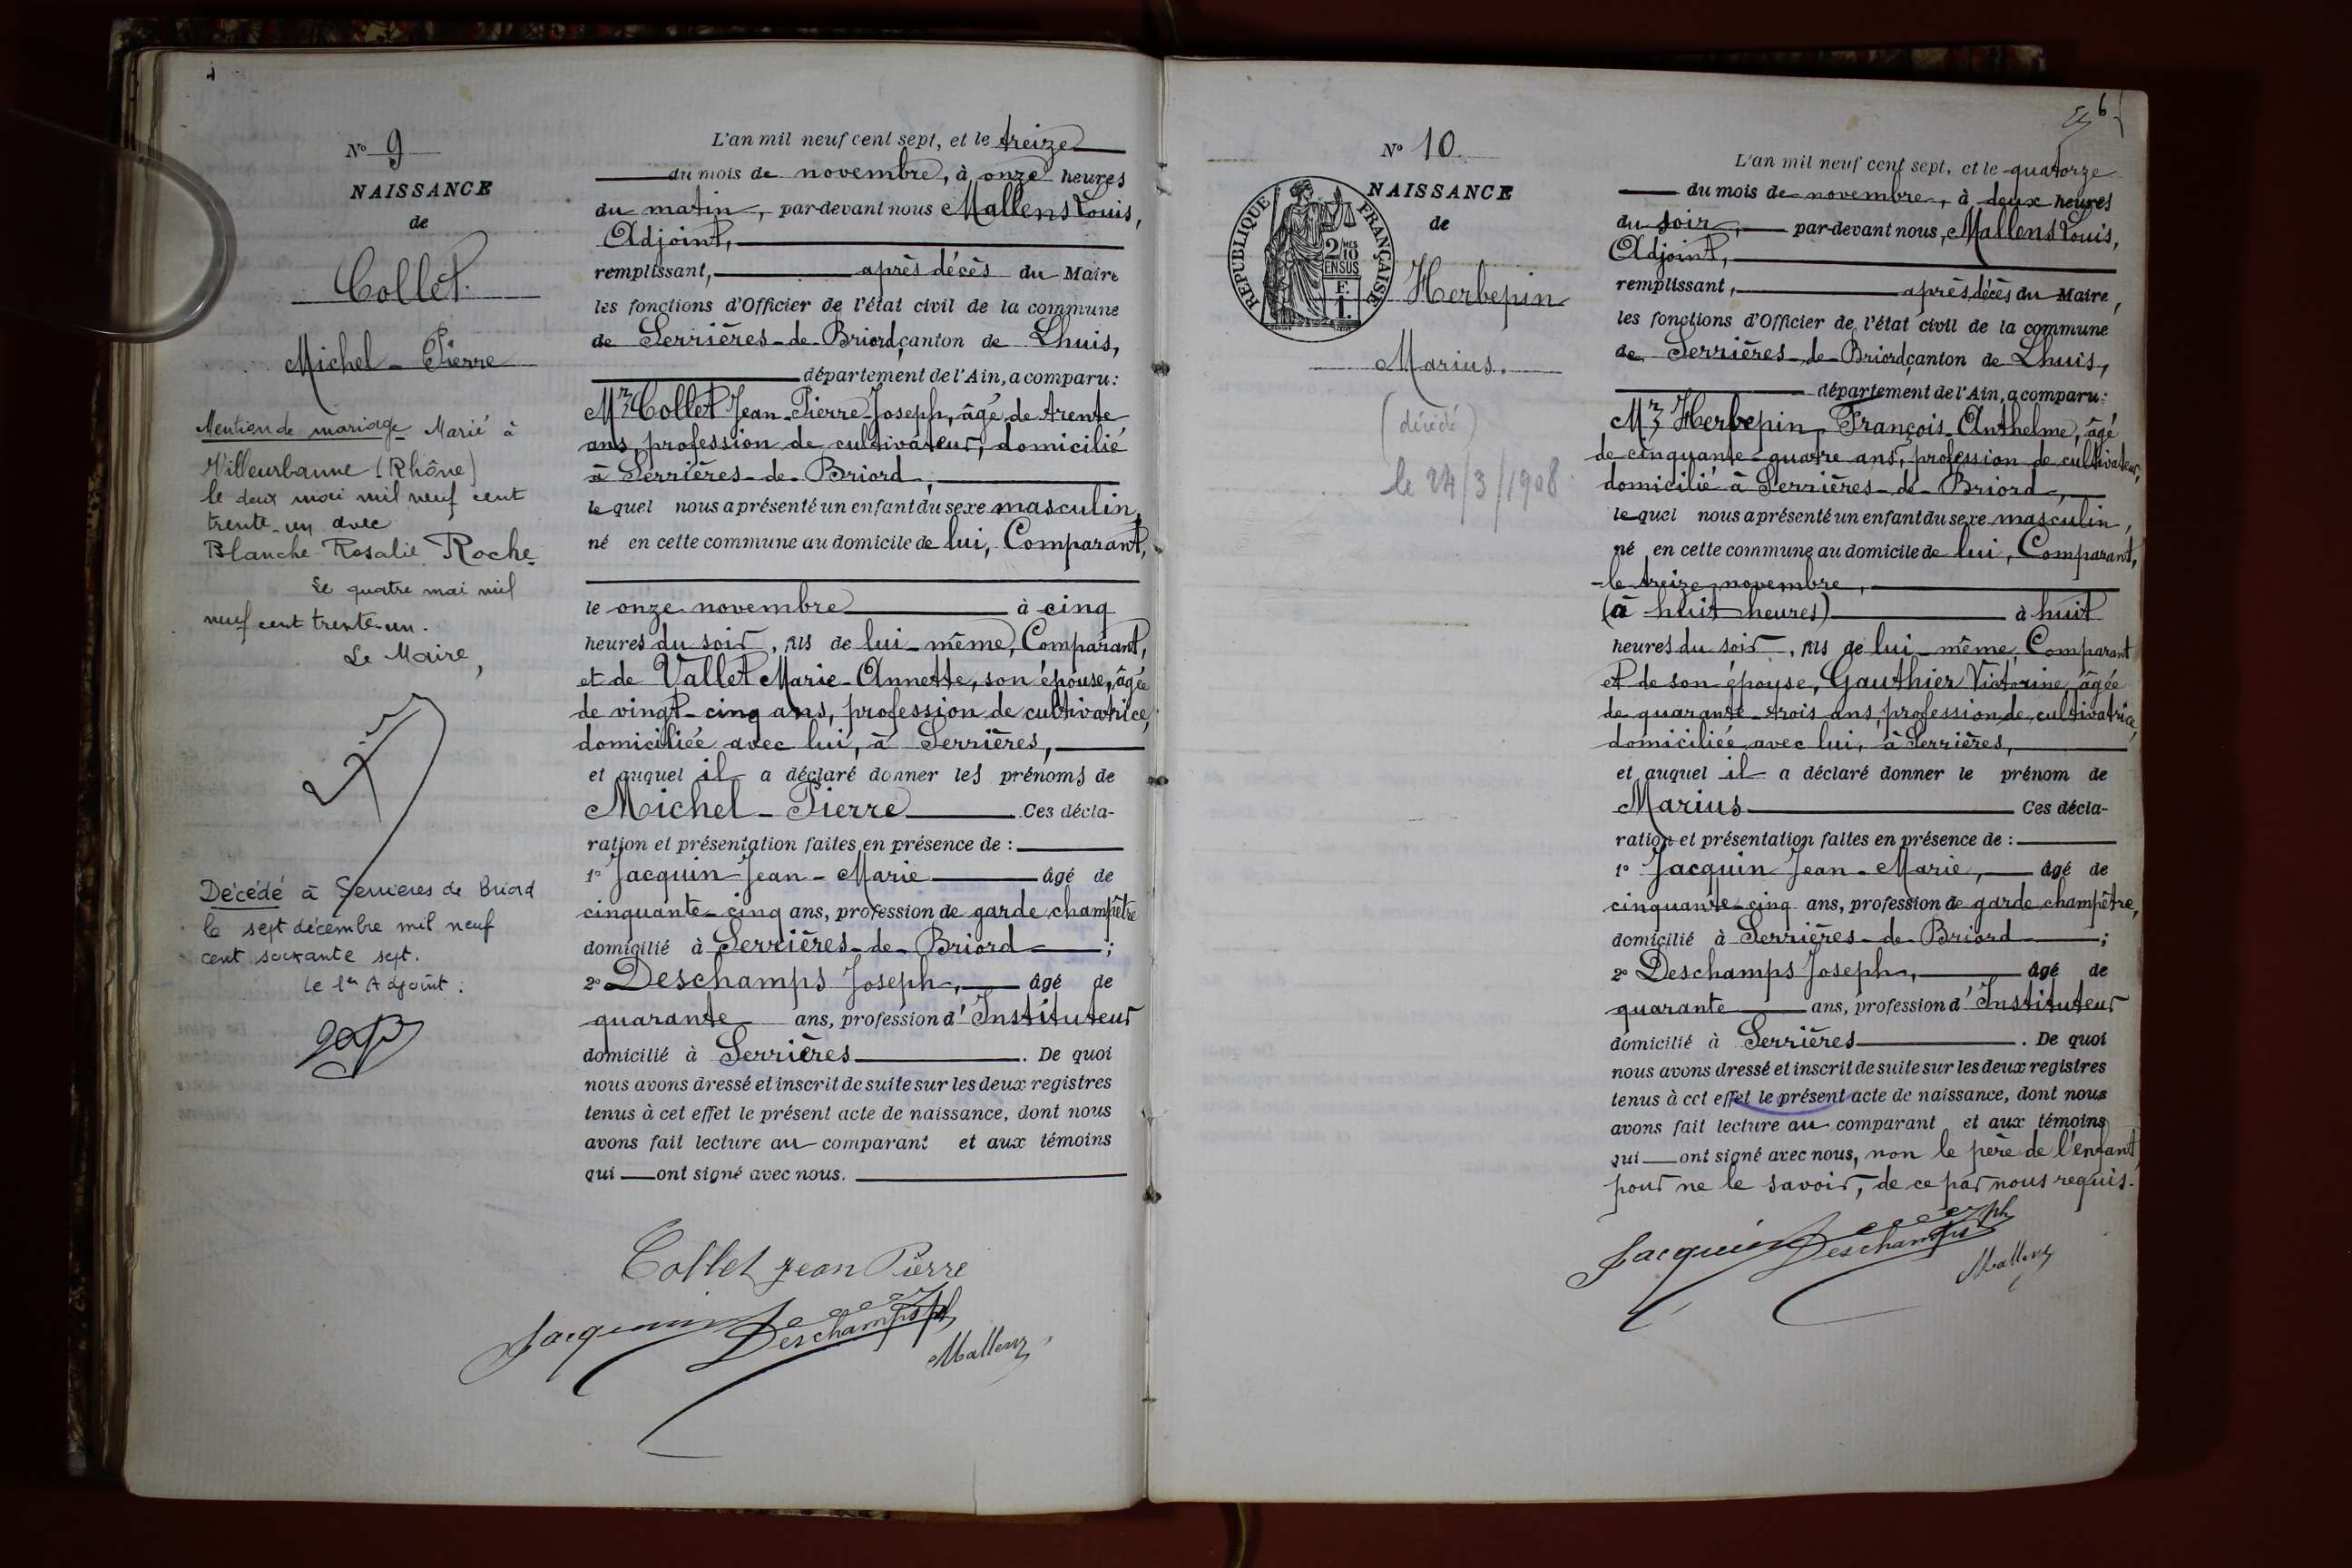 N° 9
NAISSANCE
de
Collet.
Michel-Pierre
Mention de mariage Marié à
Villeurbanne (Rhône)
le deux mai mil neuf cent
trente-un avec
Blanche Rosalie Roche
Le quatre mai mil
neuf cent trente-un.
Le Maire,
Décédé à Serrieres de Briord
le sept décembre mil neuf
cent soixante sept.
Le 1er Adjoint.
L'an mil neuf cent sept, et le treize
du mois de novembre, à onze heures
du matin, par-devant nous Mallens Louis,
Adjoint,
remplissant, après décès du Maire
les fonctions d'Officier de l'état civil de la commune
de Serrières-de-Briord, canton de Lhuis,
département de l'Ain, a comparu:
Mr Collet Jean-Pierre-Joseph, âgé de trente
ans, profession de cultivateur, domicilié
à Serrières-de-Briord,
lequel nous a présenté un enfant du sexe masculin,
né en cette commune au domicile de lui, Comparant,
le onze novembre à cinq
heures du soir, fils de lui-même, Comparant,
et de Vallet Marie-Annette, son épouse, âgée
de vingt-cinq ans, profession de cultivatrice,
domiciliée avec lui, à Serrières,
et auquel il a déclaré donner les prénoms de
Michel-Pierre Ces décla-
ration et présentation faites en présence de :
1° Jacquin Jean-Marie âgé de
cinquante-cinq ans, profession de garde champêtre
domicilié à Serrières-de-Briord ;
2° Deschamps Joseph, âgé de
quarante ans, profession d'Instituteur
domicilié à Serrières. De quoi
nous avons dressé et inscrit de suite sur les deux registres
tenus à cet effet le présent acte de naissance, dont nous
avons fait lecture au comparant et aux témoins
qui ont signé avec nous.
Collet Jean Pierre
Jacquin Deschamps Jph
Mallens
6
N° 10
NAISSANCE
de
RÉPUBLIQUE FRANÇAISE
2 MES
10
EN SUS
F.
1.
Herbepin
Marius.
(décédé)
le 24/3/1908
L'an mil neuf cent sept, et le quatorze
du mois de novembre, à deux heures
du soir, par-devant nous, Mallens Louis,
Adjoint,
remplissant, après décès du Maire,
les fonctions d'Officier de l'état civil de la commune
de Serrières-de-Briord, canton de Lhuis,
département de l'Ain, a comparu:
Mr Herbepin François-Anthelme, âgé
de cinquante-quatre ans, profession de cultivateur,
domicilié à Serrières-de-Briord,
lequel nous a présenté un enfant du sexe masculin,
né en cette commune au domicile de lui, Comparant,
le treize novembre,
(à huit heures) à huit
heures du soir, fils de lui-même, Comparant
et de son épouse, Gauthier Victorine, âgée
de quarante-trois ans, profession de cultivatrice,
domiciliée avec lui, à Serrières,
et auquel il a déclaré donner le prénom de
Marius Ces décla-
ration et présentation faites en présence de :
1° Jacquin Jean-Marie, âgé de
cinquante-cinq ans, profession de garde champêtre,
domicilié à Serrières-de-Briord ;
2° Deschamps Joseph, âgé de
quarante ans, profession d'Instituteur
domicilié à Serrières. De quoi
nous avons dressé et inscrit de suite sur les deux registres
tenus à cet effet le présent acte de naissance, dont nous
avons fait lecture au comparant et aux témoins
qui ont signé avec nous, non le père de l'enfant,
pour ne le savoir, de ce par nous requis.
Jacquin Deschamps Jph
Mallens